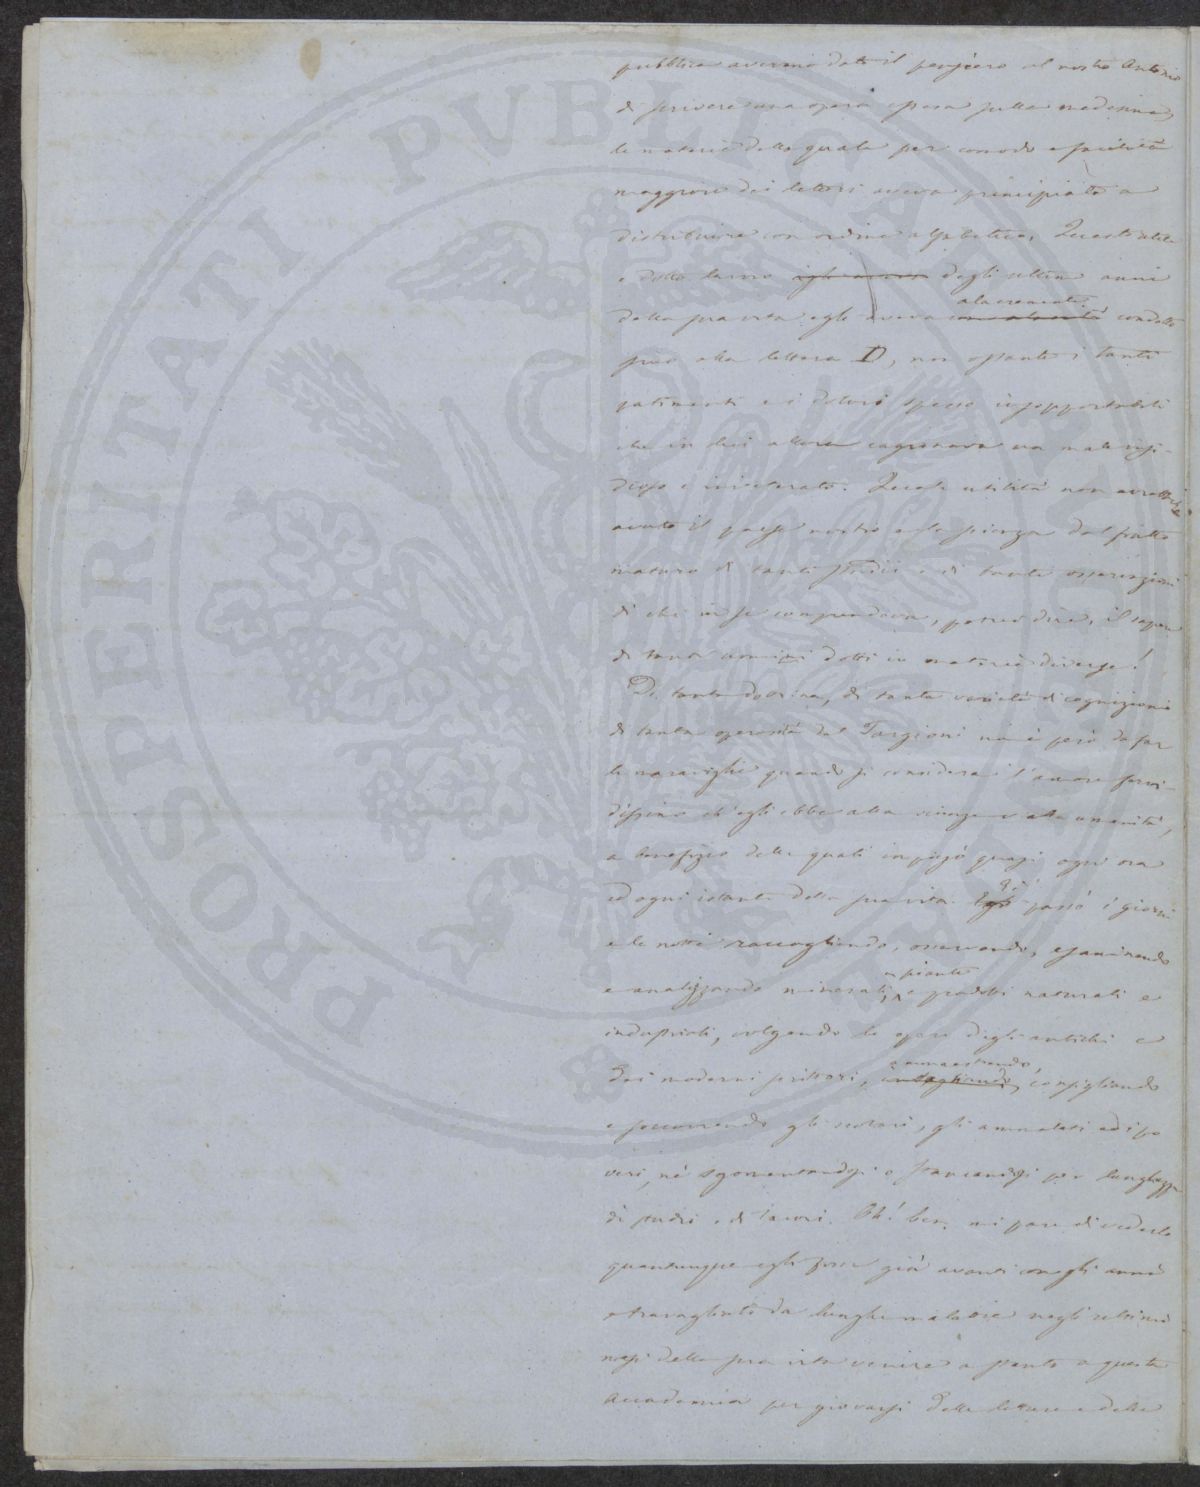 PROSPERITATI PUBLICAE AUGENDAE
pubblica avevano dato il pensiero al nostro Antonio
di scrivere una opera estesa sulla medesima,
le materie della quale per comodo e facilità
maggiore dei lettori aveva principiato a
distribuire con ordine alfabetico. Quest' utile
e dotto lavoro degli ultimi anni
della sua vita egli aveva alacremente condotto
fino alla lettera D, non ostante i tanti
patimenti e i dolori spesso insopportabili
che in lui allora cagionava un male insi-
dioso e inveterato. Quale utilità non avrebbe
avuto il paese nostro e la scienza dal frutto
maturo di tanti studii e di tante osservazioni
di chi in se comprendeva, potrei dire, il sapere
di tanti uomini dotti in materie diverse!
Di tanta dottrina, di tanta varietà di cognizioni
di tanta operosità del Targioni non è però da far
le maraviglie quando si consideri l'amore fervi-
dissimo ch'egli ebbe alla scienza e alla umanità,
a benefizio delle quali impiegò quasi ogni ora
ed ogni istante della sua vita. Ei passò i giorni
e le notti raccogliendo, osservando, esaminando
e analizzando minerali, e piante e prodotti naturali e
industriali, volgendo le opere degli antichi e
dei moderni scrittori, ammaestrando, consigliando
e soccorrendo gli scolari, gli ammalati ed i po
veri, nè sgomentandosi o stancandosi per lunghezza
di studi e di lavori. Oh! ben mi pare di vederlo
quantunque egli fosse già avanti con gli anni
e travagliato da lunghe malattie negli ultimi
mesi della sua vita venire a stento a questa
Accademia per giovarsi delle letture e delle